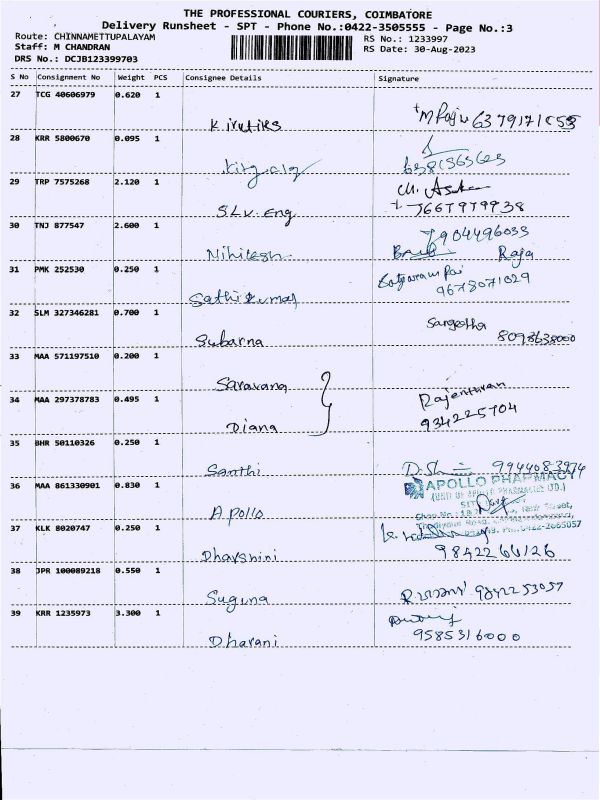 THE PROFESSIONAL COURIERS, COIMBATORE
Delivery Runsheet - SPT - Phone No.:0422-3505555 - Page No.:3
Route: CHINNAMETTUPALAYAM
RS No.: 1233997
Staff: M CHANDRAN
RS Date: 30-Aug-2023
DRS No.: DCJB123399703
S No Consignment No Weight PCS Consignee Details Signature
27 TCG 40606979 0.620 1
Kirutiks
28 KRR 5800670 0.095 1
29 TRP 7575268 2.120 1
SLV. Eng
30 TNJ 877547 2.600 1
7904496033
Nihilesh Raja
31 PMK 252530 0.250 1
Sathikumar 9678071029
32 SLM 327346281 0.700 1
Sangeetha
Subarna 8098638000
33 MAA 571197510 0.200 1
Saravana
34 MAA 297378783 0.495 1
Rajenthran
Diana 934225704
35 BHR 50110326 0.250 1
Santhi 9944083974
36 MAA 861330901 0.830 1
APOLLO PHARMACY
Apollo
37 KLK 8020747 0.250 1
0422-2665057
Dharshini 9842266126
38 JPR 100089218 0.550 1
Suguna 9842253057
39 KRR 1235973 3.300 1
Dharani 9585316000